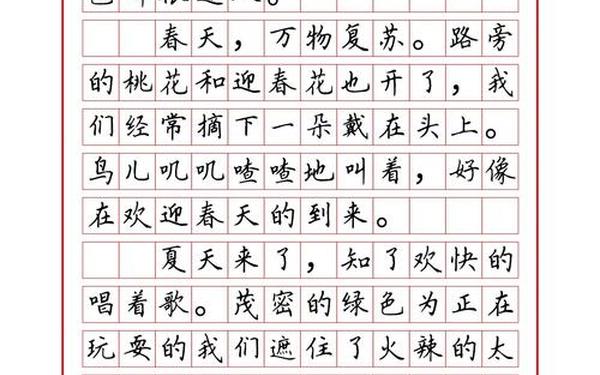 春天，万物复苏。路旁
的桃花和迎春花也开了，我
们经常摘下一朵戴在头上。
鸟儿叽叽喳喳地叫着，好像
在欢迎春天的到来。
夏天来了，知了欢快的
唱着歌。茂密的绿色为正在
玩耍的我们遮住了火辣的太